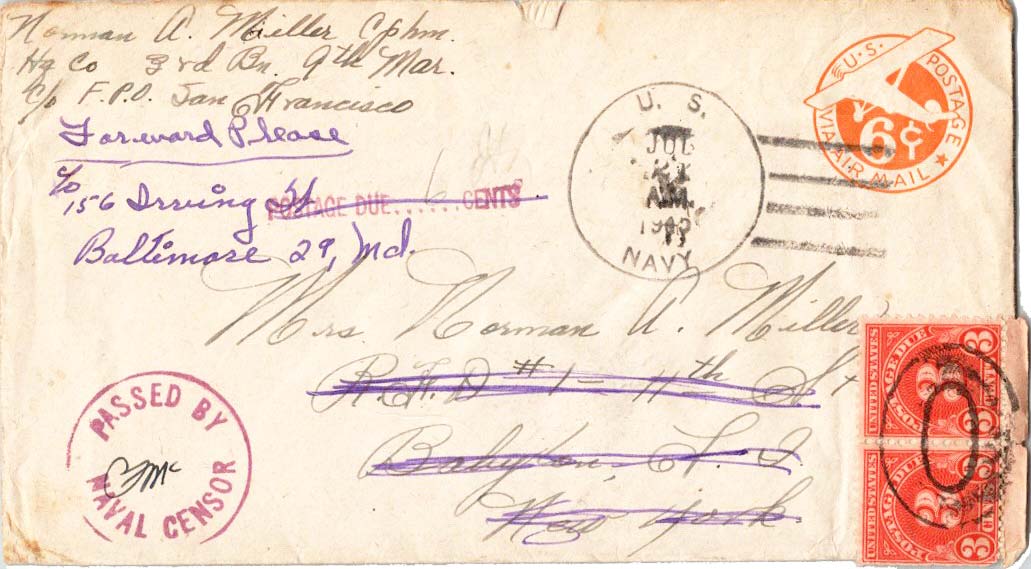 Norman A. Miller Cphm.
Hq Co 3rd Bn. 9th Mar.
c/o F.P.O. San Francisco
Forward Please
c/o
156 Irving St
Baltimore 29, Md.
POSTAGE DUE......6 CENTS
U. S.
JUL
A.M.
1943
NAVY
U.S. POSTAGE
6¢
VIA AIR MAIL
Mrs. Norman A. Miller
R.F.D #1 - 11th St
Babylon, L. I
New York.
PASSED BY
NAVAL CENSOR
UNITED STATES
POSTAGE DUE
3 CENTS 3
UNITED STATES
POSTAGE DUE
3 CENTS 3